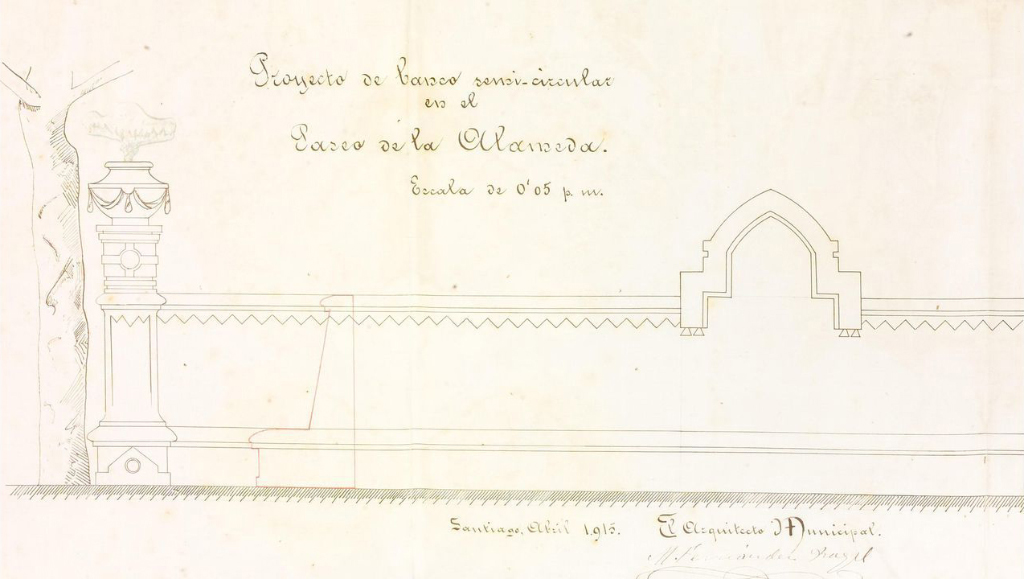 Proyecto de banco semi-circular
en el
Paseo de la Alameda.
Escala de 0'05 p. m.
Santiago, Abril 1,915.
El Arquitecto Municipal.